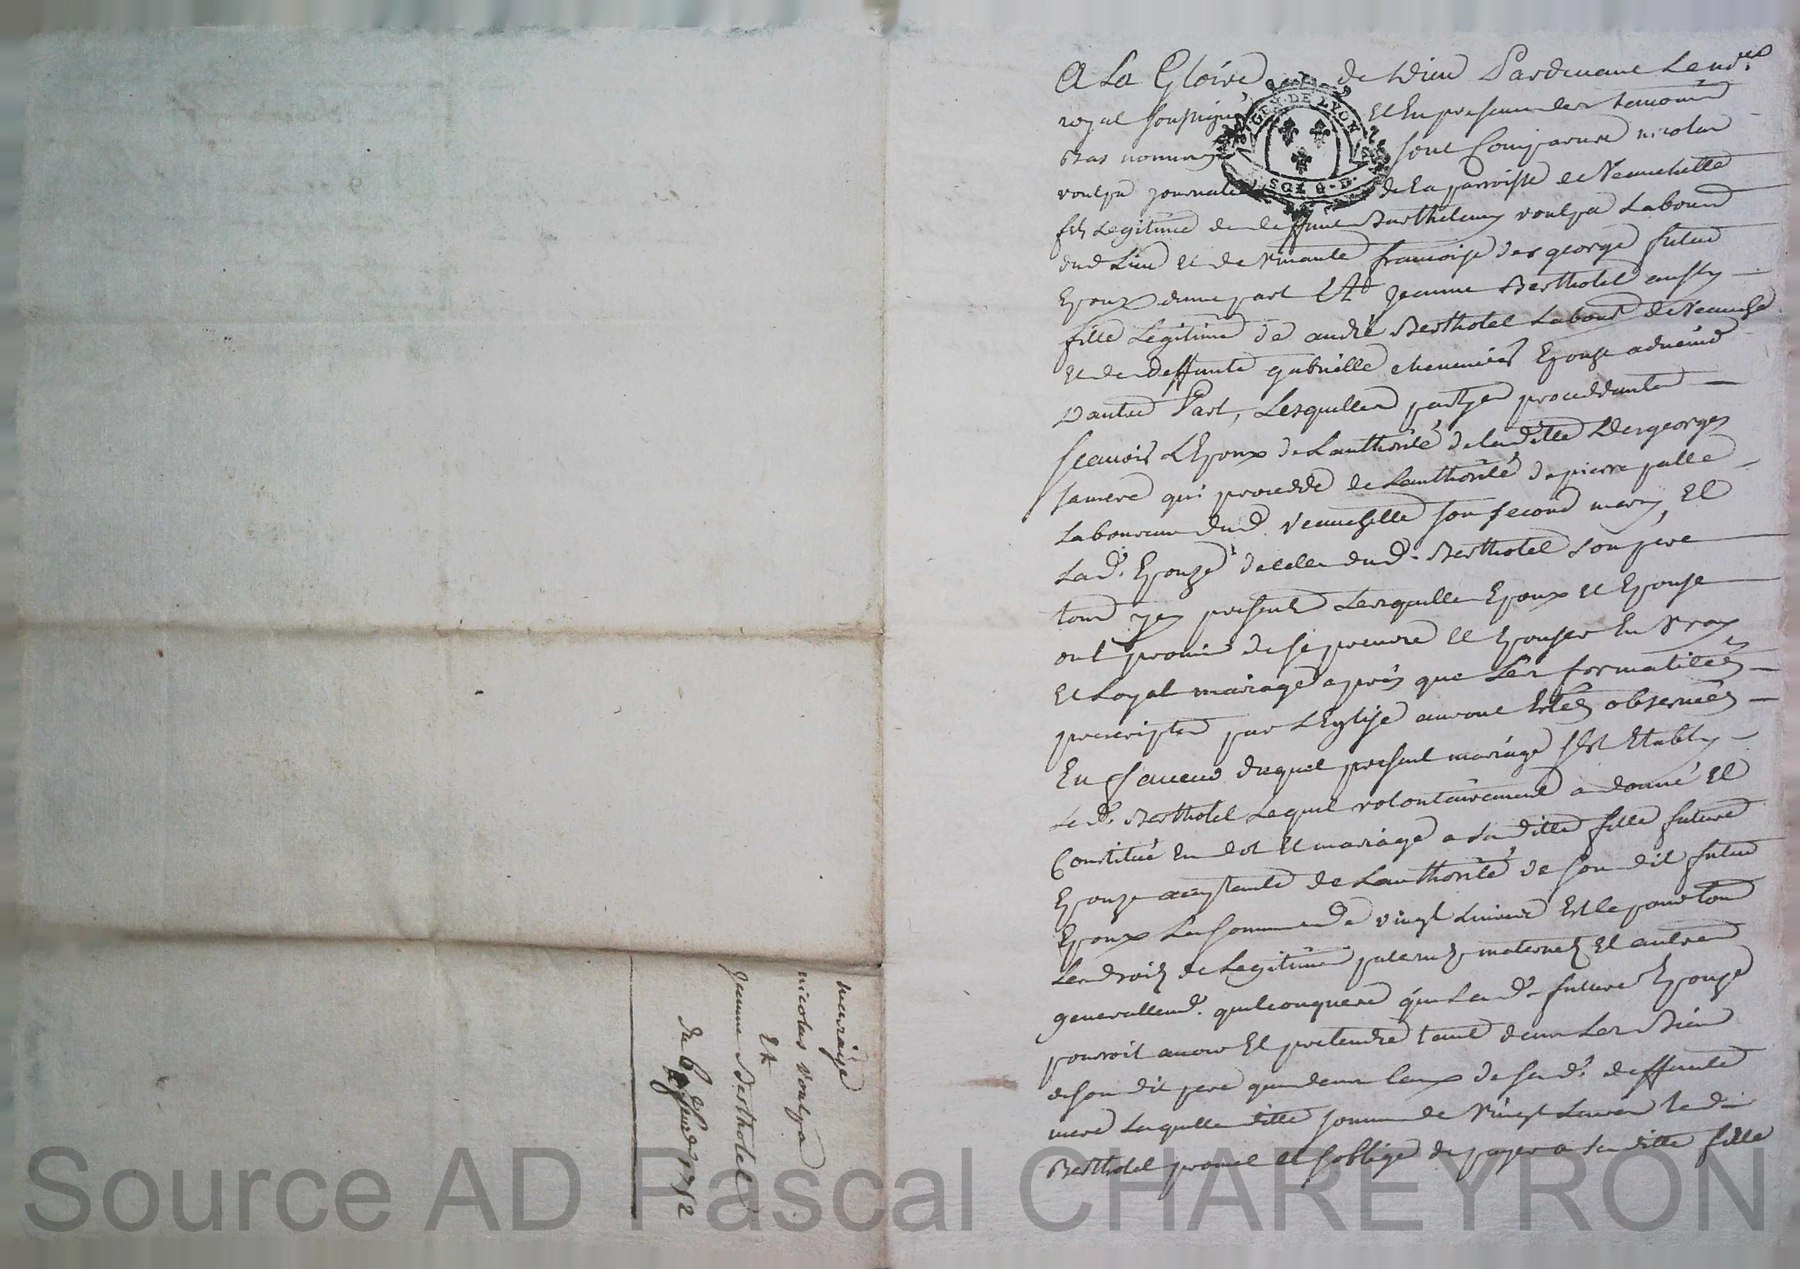 mariage
nicolas voulpa
Et
Jeanne Berthotel
du 6e 1752
A La Gloire de Dieu Pardevant Le nore
royal soussigné Et En presence des temoins
Bas nommez sont Comparus nicolas
voulpa journalie de La parroisse de Veauchette
fils Legitime de deffunt Barthelemy voulpa Laboureur
dud Lieu et de vivante francoise des george futur
Epoux dune part Et Jeanne Berthotel aussy
fille Legitime de andré Berthotel Labour de Veauche
et de deffunte gabrielle Epouze advenir
Dautre Part, Lesquelles partyes proceddantes
scavoir LEpoux de Lauthorité de laditte Desgeorges
sa mere qui procedde de Lauthorité de pierre palle
Laboureur dud. Veauchette son second mary, Et
Lad. Epouze de celle dud. Berthotel son pere
tous icy presents Lesquelles Epoux et Epouse
ont promis de se prendre et Epouser En vray
et Loyal mariage apres que Les formalitées
prescriptes par LEglise auront Estées observées
En faveur duquel present mariage sest Etably
Le d. Berthotel Lequel volontairement a donné Et
Constitué En dot Et mariage a sa ditte fille future
Epouze acceptante de Lauthorité de son dit futur
Epoux La somme de vingt Livres Et le pour tous
Les droits de Legitime paternels maternels Et autres
generallemt. quelconques que Lad. future Epouze
pourroit avoir Et pretendre tant dans Les Biens
de son dit pere que dans Ceux de sad. deffunte
mere Laquelle ditte somme de vingt Livres le d.
Berthotel promet et soblige de payer a sa ditte fille
GEN. DE LYON
Source AD Pascal CHAREYRON